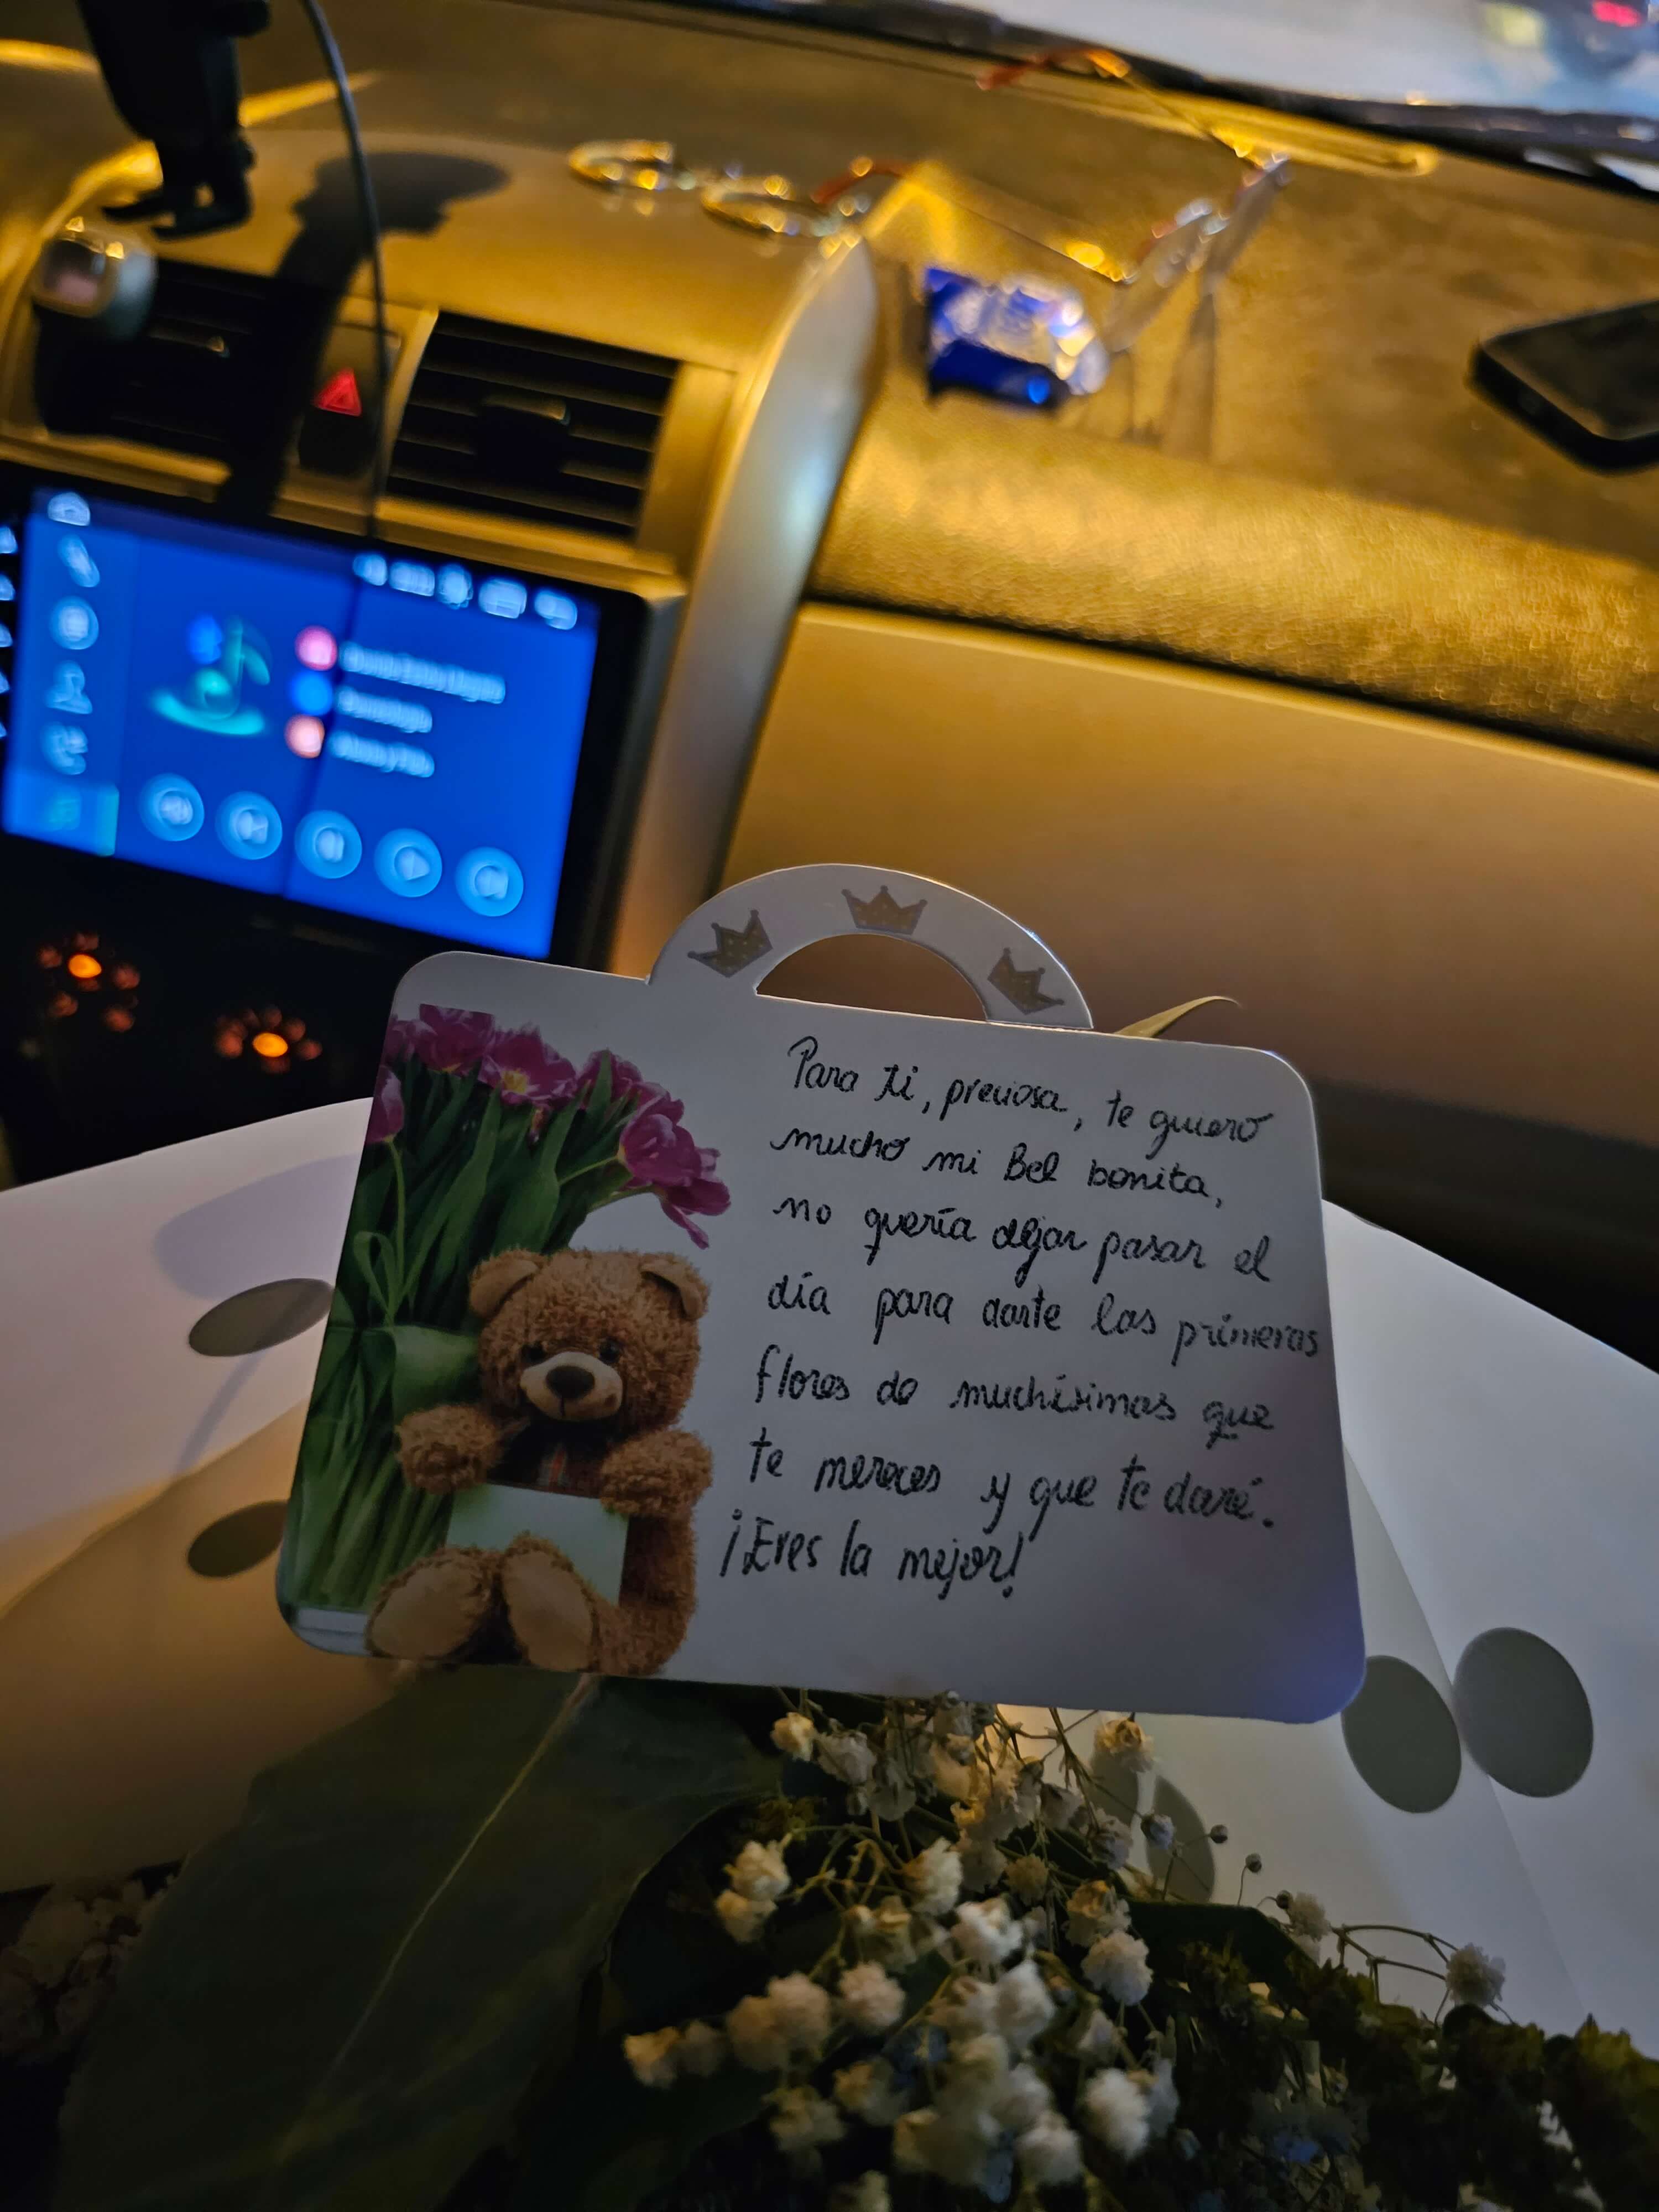 Para ti, preciosa, te quiero
mucho mi Bel bonita,
no quería dejar pasar el
día para darte las primeras
flores de muchísimas que
te mereces y que te daré.
¡Eres la mejor!